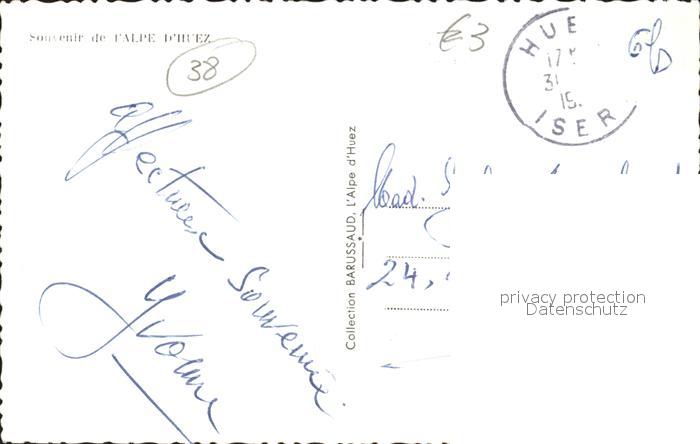 Souvenir de l'ALPE D'HUEZ
38
€3
HUE
17
31
15.
ISER
affectueux
Souvenir
Yvonne
Collection BARUSSAUD, L'Alpe d'Huez
Mad.
24,
privacy protection
Datenschutz